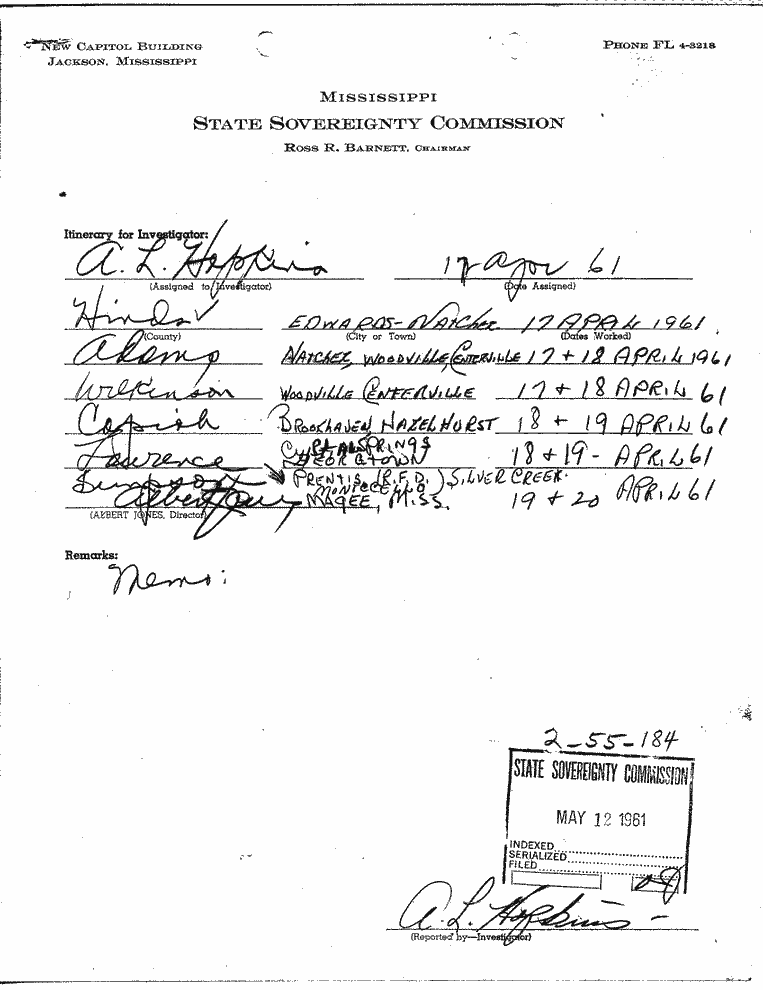 NEW CAPITOL BUILDING
JACKSON, MISSISSIPPI
PHONE FL 4-3218
MISSISSIPPI
STATE SOVEREIGNTY COMMISSION
ROSS R. BARNETT, CHAIRMAN
Itinerary for Investigator:
A. L. Hopkins 17 Apr 61
(Assigned to Investigator) (Date Assigned)
Hinds EDWARDS-NATCHEZ 17 APRIL 1961
(County) (City or Town) (Dates Worked)
Adams NATCHEZ, WOODVILLE, CENTERVILLE 17 + 18 APRIL 1961
Wilkinson WOODVILLE CENTERVILLE 17 + 18 APRIL 61
Copiah BROOKHAVEN, HAZELHURST 18 + 19 APRIL 61
Lawrence CRYSTAL SPRINGS GEORGETOWN 18 + 19 - APRIL 61
Simpson PRENTISS (R.F.D.) SILVER CREEK
MONTICELLO
Albert Jones MAGEE, MISS. 19 + 20 APRIL 61
(ALBERT JONES, Director)
Remarks:
Memo:
2-55-184
STATE SOVEREIGNTY COMMISSION
MAY 12 1961
INDEXED
SERIALIZED
FILED
A. L. Hopkins -
(Reported by—Investigator)